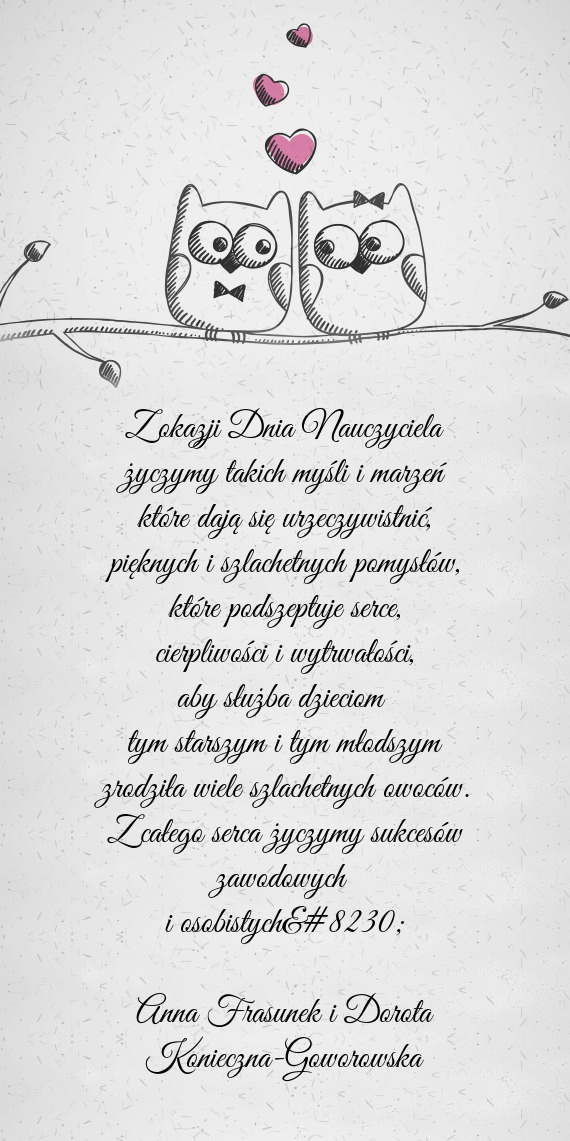 Zokazji Dnia Nauczyciela
życzymy takich myśli i marzeń
które dają się urzeczywistnić,
pięknych i szlachetnych pomysłów,
które podszeptuje serce,
cierpliwości i wytrwałości,
aby służba dzieciom
tym starszym i tym młodszym
zrodziła wiele szlachetnych owoców.
Zcałego serca życzymy sukcesów
zawodowych
i osobistych&#8230;
Anna Frasunek i Dorota
Konieczna-Goworowska